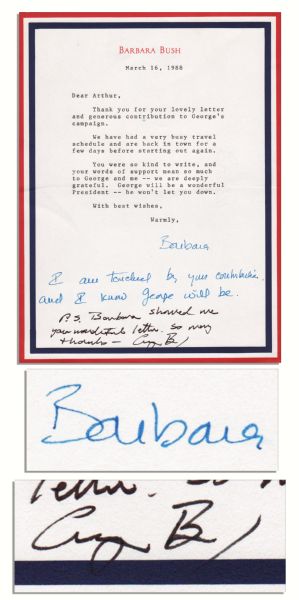 BARBARA BUSH
March 16, 1988
Dear Arthur,
Thank you for your lovely letter
and generous contribution to George's
campaign.
We have had a very busy travel
schedule and are back in town for a
few days before starting out again.
You were so kind to write, and
your words of support mean so much
to George and me -- we are deeply
grateful. George will be a wonderful
President -- he won't let you down.
With best wishes,
Warmly,
Barbara
I am touched by your contribution
and I know George will be.
P.S. Barbara showed me
your wonderful letter. So many
thanks — George Bush
Barbara
letter. So
George Bush